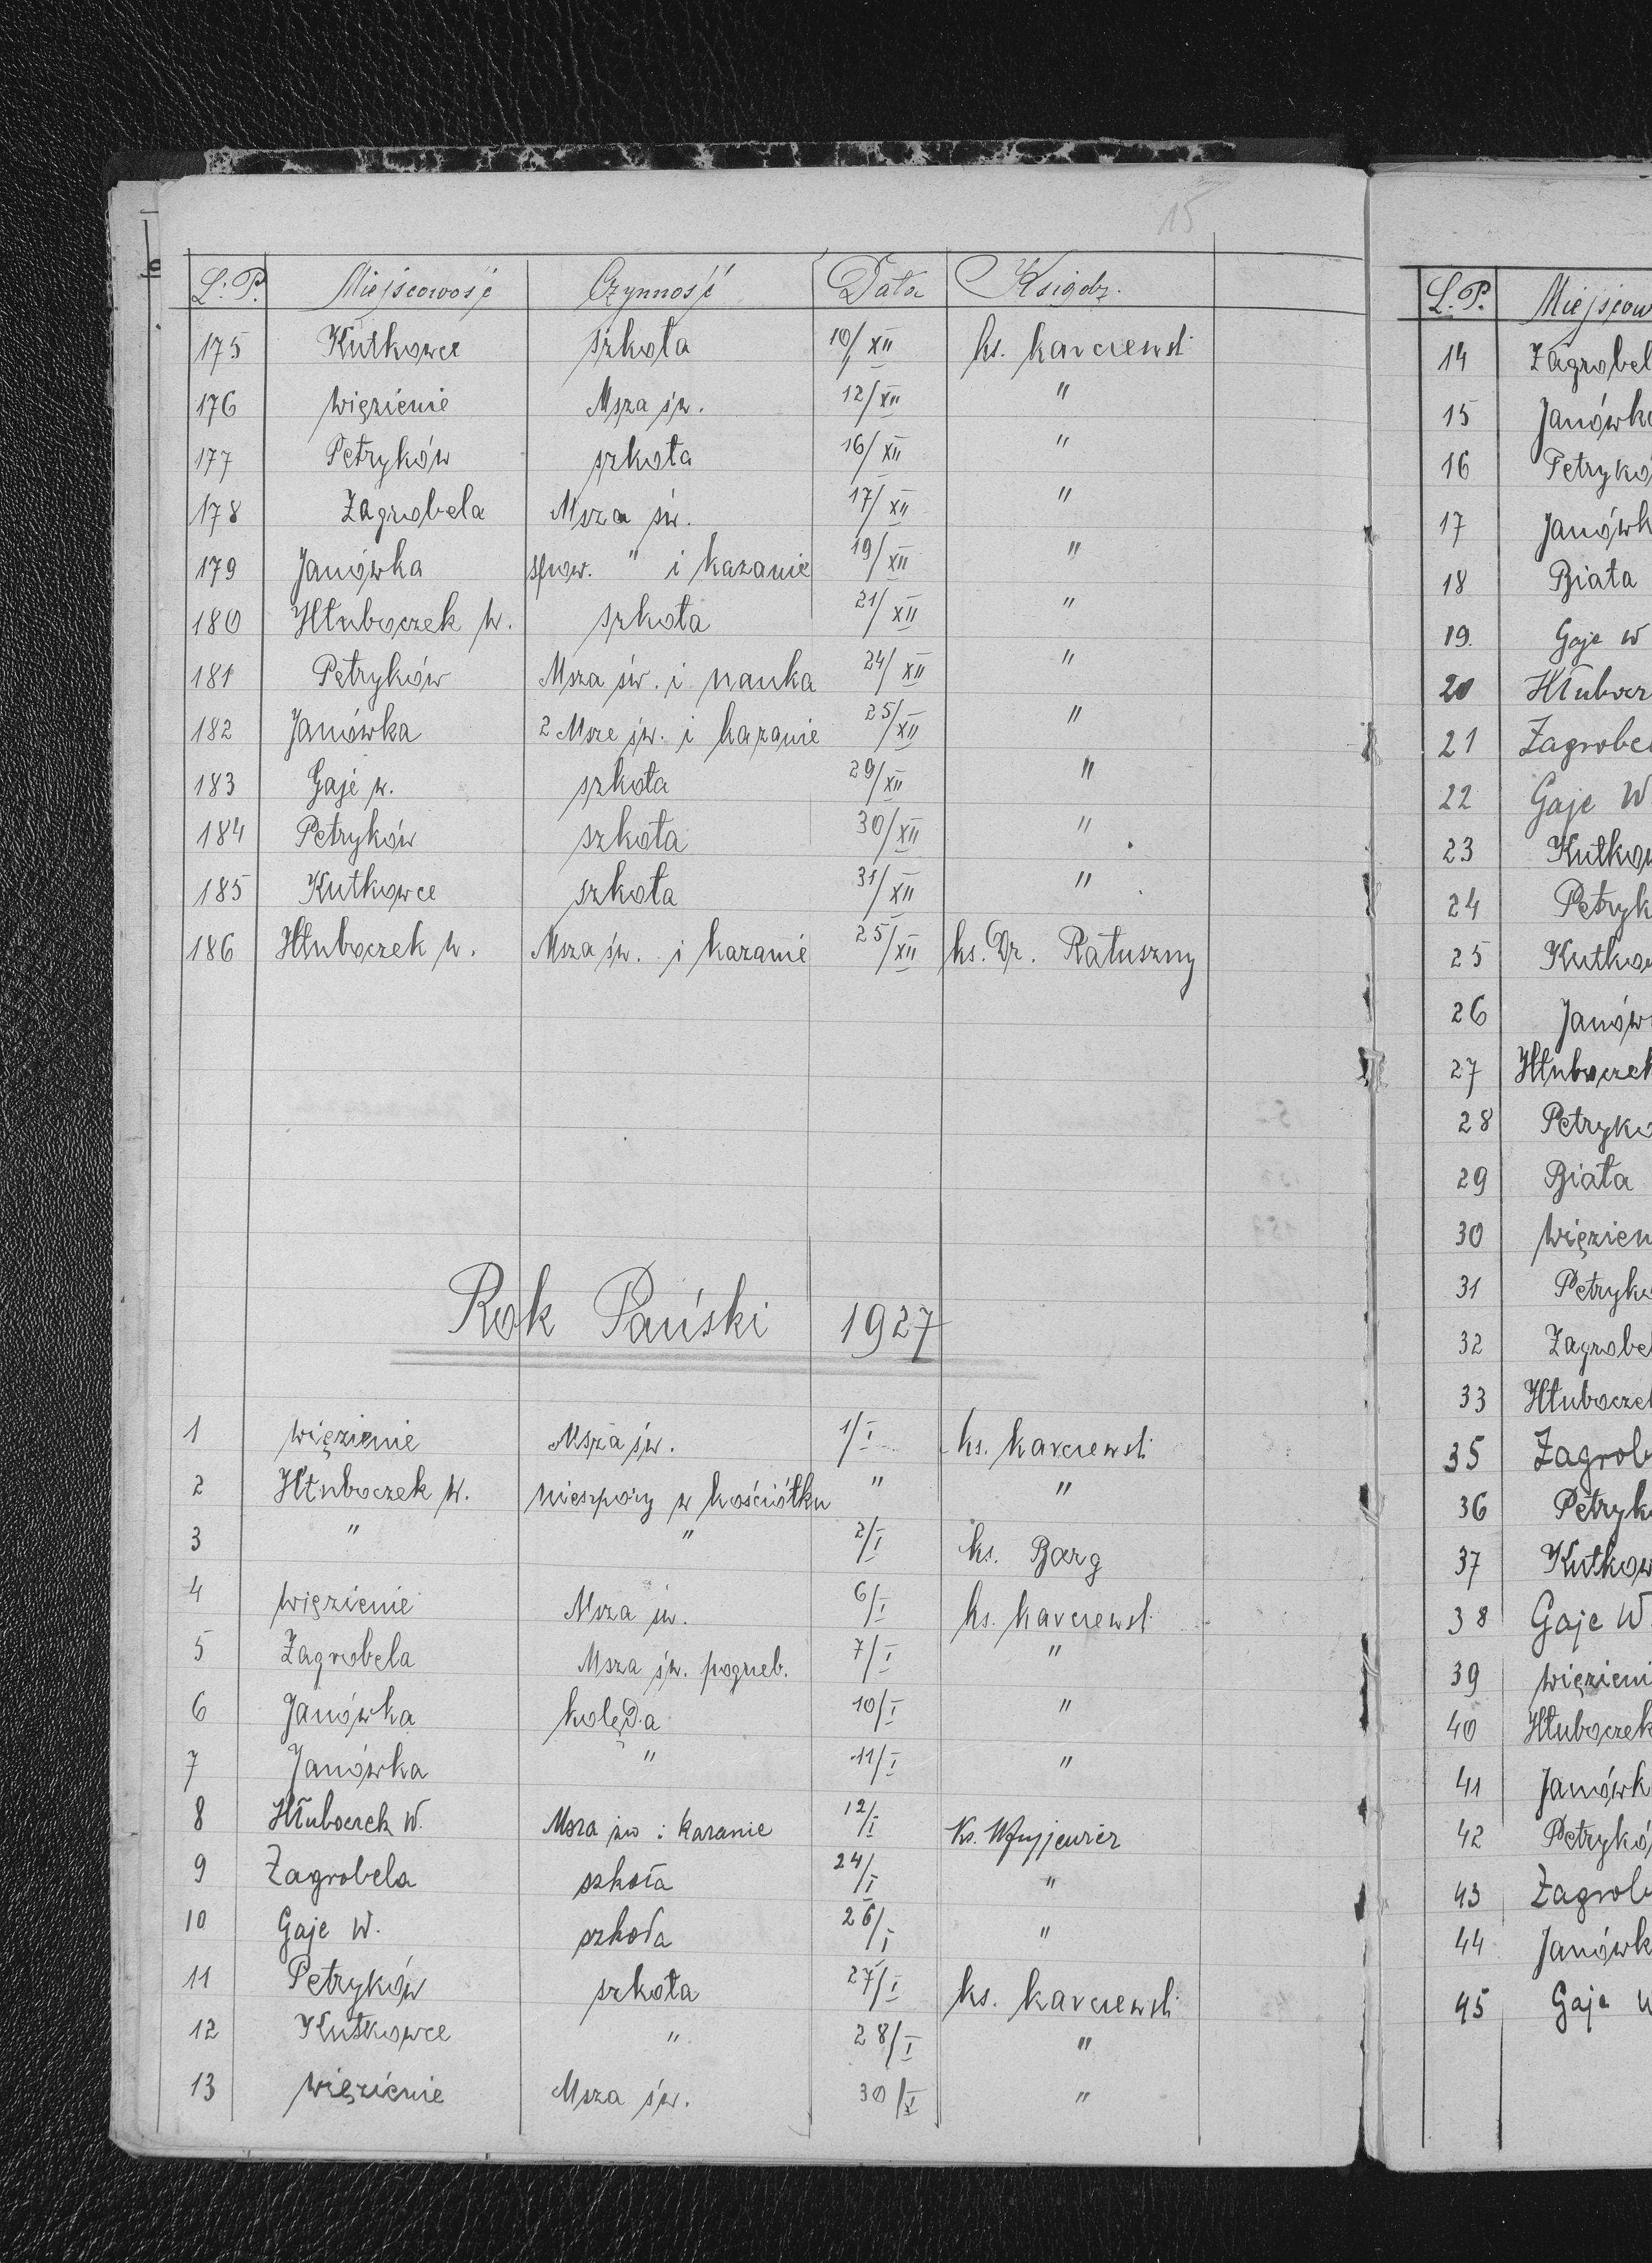 15
L.P. Miejscowość Czynność Data Ksiądz.
175 Kutkowce szkoła 10/XII ks. Karczewski
176 więzienie Msza św. 12/XII "
177 Petryków szkoła 16/XII "
178 Zagrobela Msza św. 17/XII "
179 Janówka spow. " i kazanie 19/XII "
180 Hłuboczek w. szkoła 21/XII "
181 Petryków Msza św. i nauka 24/XII "
182 Janówka 2 Msze św. i kazanie 25/XII "
183 Gaje w. szkoła 29/XII "
184 Petryków szkoła 30/XII "
185 Kutkowce szkoła 31/XII "
186 Hłuboczek w. Msza św. i kazanie 25/XII ks. Dr. Ratuszny
Rok Pański 1927
1 więzienie Msza św. 1/I ks. Karczewski
2 Hłuboczek W. nieszpory w kościółku " "
3 " " 2/I ks. Barg
4 więzienie Msza św. 6/I ks. Karczewski
5 Zagrobela Msza św. pogrzeb. 7/I "
6 Janówka kolęda 10/I "
7 Janówka " 11/I "
8 Hłuboczek W. Msza św i kazanie 12/I Ks.
9 Zagrobela szkoła 24/I "
10 Gaje W. szkoła 26/I "
11 Petryków szkoła 27/I ks. Karczewski
12 Kutkowce " 28/I "
13 więzienie Msza św. 30/I "
L.P. Miejscow
14 Zagrobel
15 Janówk
16 Petrykó
17 Janówk
18 Biała
19. Gaje W
20 Hłubocz
21 Zagrobe
22 Gaje W
23 Kutkow
24 Petryk
25 Kutkow
26 Janów
27 Hłuboczek
28 Petryko
29 Biała
30 więzien
31 Petryk
32 Zagrobe
33 Hłubocze
35 Zagrob
36 Petryk
37 Kutkow
38 Gaje W.
39 więzieni
40 Hłuboczek
41 Janówk
42 Petrykó
43 Zagrob
44 Janówk
45 Gaje W